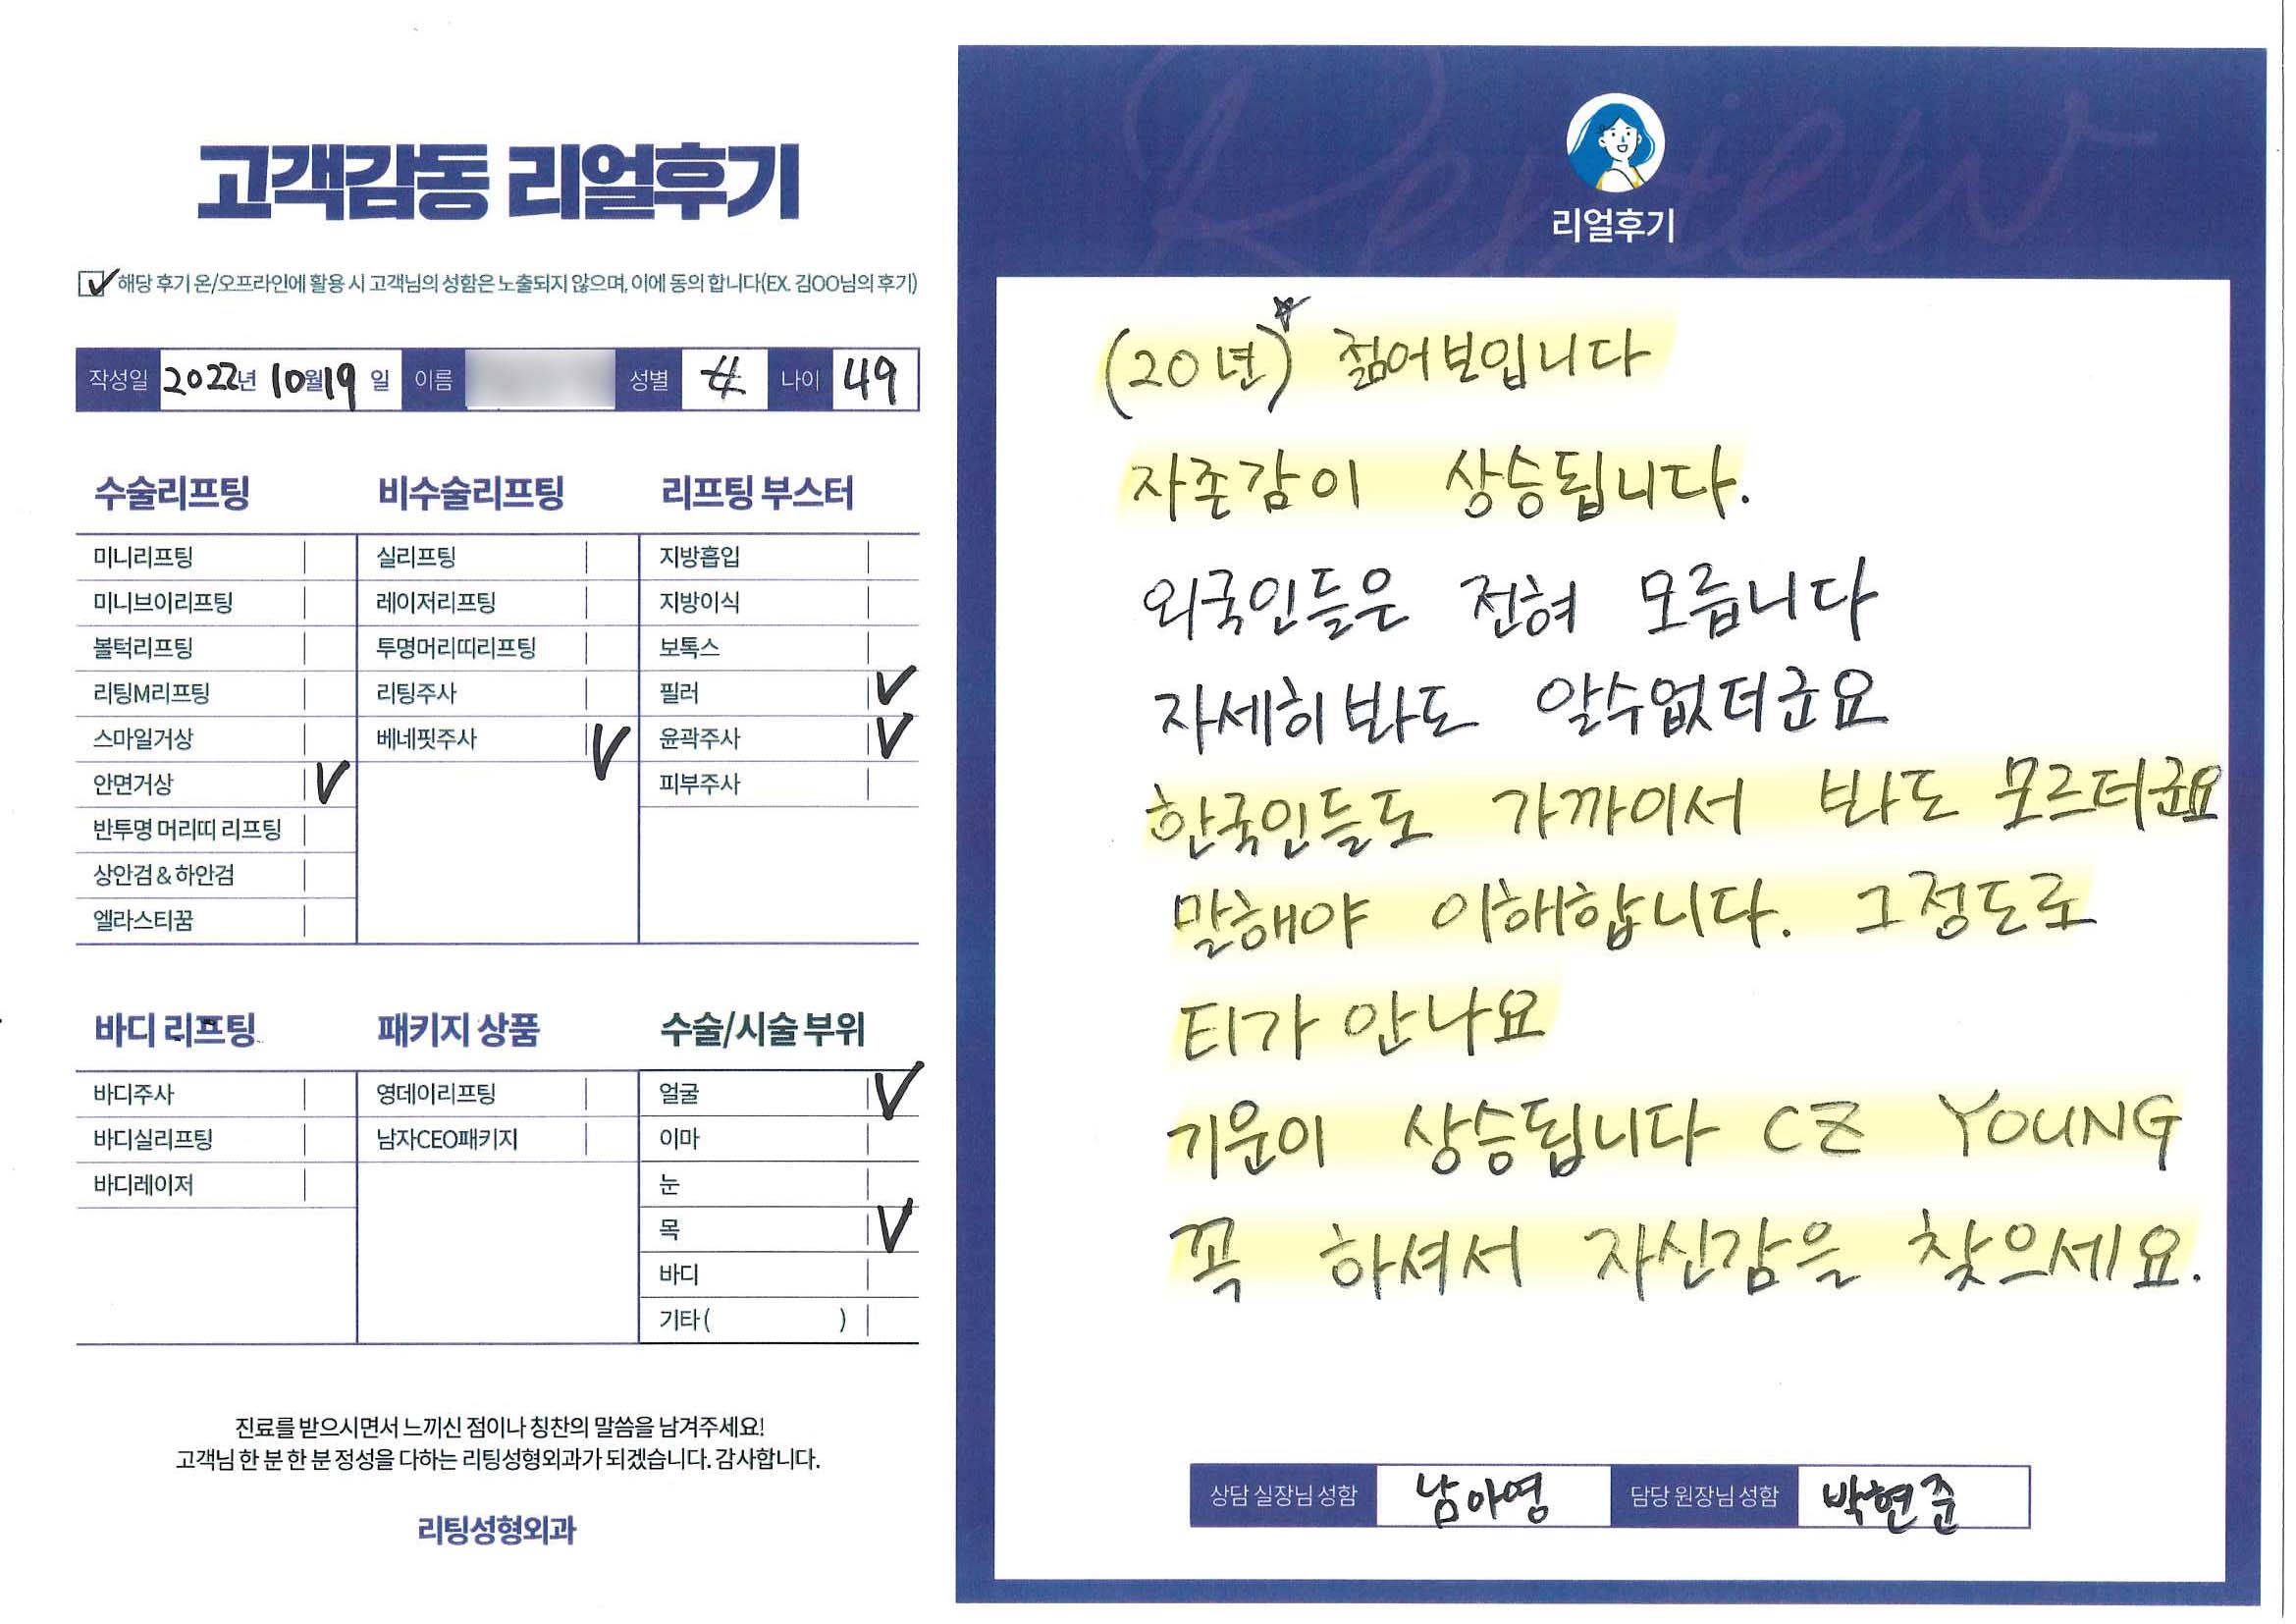 고객감동 리얼후기
해당 후기 온/오프라인에 활용 시 고객님의 성함은 노출되지 않으며, 이에 동의 합니다(EX. 김OO님의 후기)
작성일 2022년 10월 19일 이름 성별 나이 49
수술리프팅
미니리프팅
미니브이리프팅
볼턱리프팅
리팅M리프팅
스마일거상
안면거상 V
반투명 머리띠 리프팅
상안검 & 하안검
엘라스티꿈
비수술리프팅
실리프팅
레이저리프팅
투명머리띠리프팅
리팅주사
베네핏주사 V
리프팅 부스터
지방흡입
지방이식
보톡스
필러 V
윤곽주사 V
피부주사
바디 리프팅
바디주사
바디실리프팅
바디레이저
패키지 상품
영데이리프팅
남자CEO패키지
수술/시술 부위
얼굴 V
이마
눈
목 V
바디
기타 ( )
진료를 받으시면서 느끼신 점이나 칭찬의 말씀을 남겨주세요!
고객님 한 분 한 분 정성을 다하는 리팅성형외과가 되겠습니다. 감사합니다.
리팅성형외과
Review
리얼후기
(20년) 젊어보입니다
자존감이 상승됩니다.
외국인들은 전혀 모릅니다
자세히봐도 알수없더군요
한국인들도 가까이서 봐도 모르더군요
말해야 이해합니다. 그정도로
티가 안나요
기운이 상승됩니다 CZ YOUNG
꼭 하셔서 자신감을 찾으세요.
상담 실장님 성함 남아영 담당 원장님 성함 박현준